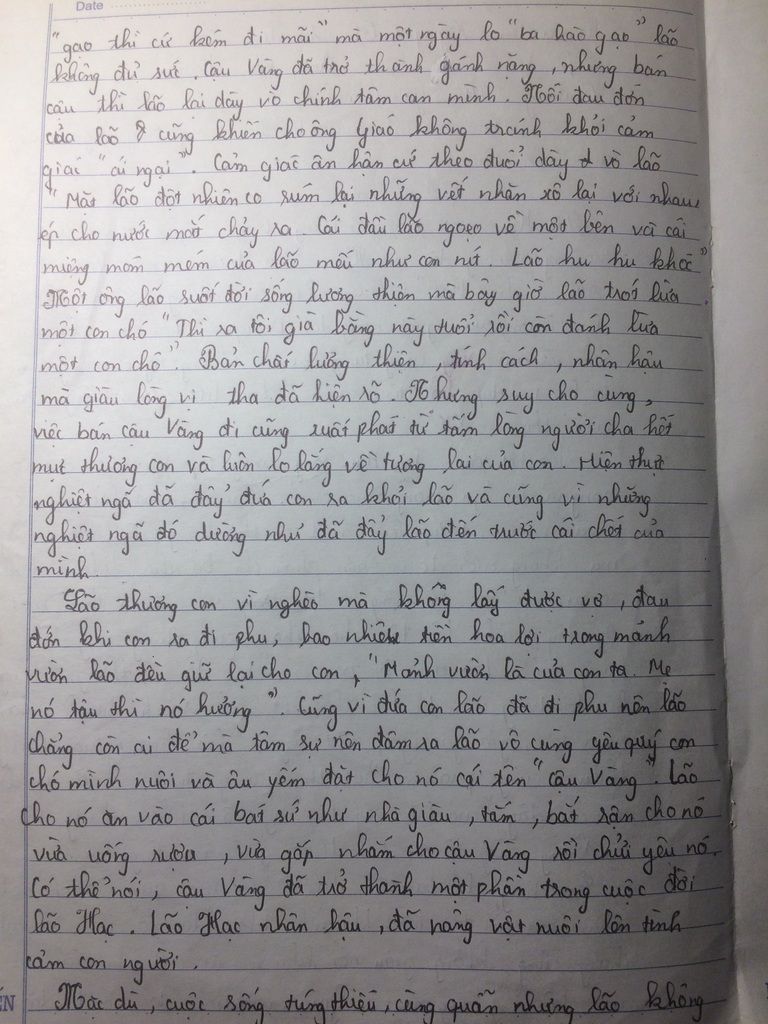 Date
"gạo thì cứ kém đi mãi" mà một ngày lo "ba hào gạo" lão
không đủ sức. Cậu Vàng đã trở thành gánh nặng, nhưng bán
cậu thì lão lại dày vò chính tâm can mình. Nỗi đau đớn
của lão cũng khiến cho ông Giáo không tránh khỏi cảm
giác "ái ngại". Cảm giác ân hận cứ theo đuổi dày vò lão
"Mặt lão đột nhiên co rúm lại những vết nhăn xô lại với nhau,
ép cho nước mắt chảy ra. Cái đầu lão ngoẹo về một bên và cái
miệng móm mém của lão mếu như con nít. Lão hu hu khóc"
Một ông lão suốt đời sống lương thiện mà bây giờ lão trót lừa
một con chó "Thì ra tôi già bằng này tuổi rồi còn đánh lừa
một con chó". Bản chất lương thiện, tính cách, nhân hậu
mà giàu lòng vị tha đã hiện rõ. Nhưng suy cho cùng,
việc bán cậu Vàng đi cũng xuất phát từ tấm lòng người cha hết
mực thương con và luôn lo lắng về tương lai của con. Hiện thực
nghiệt ngã đã đẩy đứa con ra khỏi lão và cũng vì những
nghiệt ngã đó dường như đã đẩy lão đến trước cái chết của
mình.
Lão thương con vì nghèo mà không lấy được vợ, đau
đớn khi con ra đi phu, bao nhiêu tiền hoa lợi trong mảnh
vườn lão đều giữ lại cho con, "Mảnh vườn là của con ta. Mẹ
nó tậu thì nó hưởng". Cũng vì đứa con lão đã đi phu nên lão
chẳng còn ai để mà tâm sự nên đâm ra lão vô cùng yêu quý con
chó mình nuôi và âu yếm đặt cho nó cái tên "cậu Vàng". Lão
cho nó ăn vào cái bát sứ như nhà giàu, tắm, bắt rận cho nó
vừa uống rượu, vừa gắp nhắm cho cậu Vàng rồi chửi yêu nó.
Có thể nói, cậu Vàng đã trở thành một phần trong cuộc đời
lão Hạc. Lão Hạc nhân hậu, đã nâng vật nuôi lên tình
cảm con người.
Mặc dù, cuộc sống túng thiếu, cùng quẫn nhưng lão không